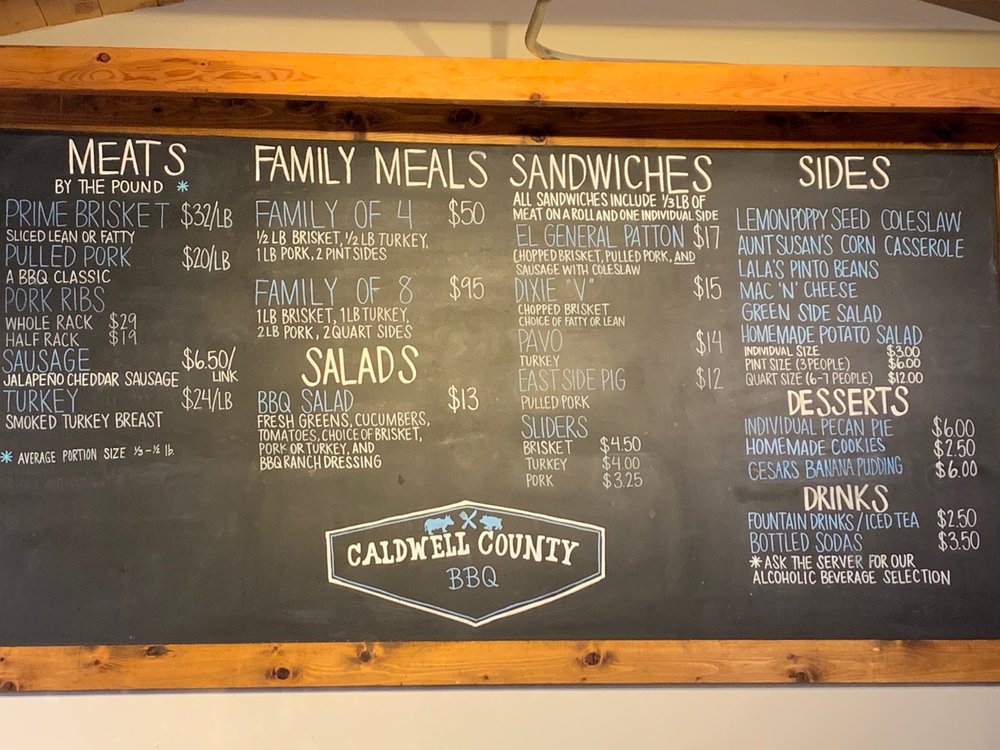 MEATS
BY THE POUND *
PRIME BRISKET $32/LB
SLICED LEAN OR FATTY
PULLED PORK $20/LB
A BBQ CLASSIC
PORK RIBS
WHOLE RACK $29
HALF RACK $19
SAUSAGE $6.50/
JALAPEÑO CHEDDAR SAUSAGE LINK
TURKEY $24/LB
SMOKED TURKEY BREAST
* AVERAGE PORTION SIZE ⅓-½ lb.
FAMILY MEALS
FAMILY OF 4 $50
½ LB BRISKET, ½ LB TURKEY,
1LB PORK, 2 PINT SIDES
FAMILY OF 8 $95
1LB BRISKET, 1LB TURKEY,
2LB PORK, 2 QUART SIDES
SALADS
BBQ SALAD $13
FRESH GREENS, CUCUMBERS,
TOMATOES, CHOICE OF BRISKET,
PORK OR TURKEY, AND
BBQ RANCH DRESSING
SANDWICHES
ALL SANDWICHES INCLUDE ⅓ LB OF
MEAT ON A ROLL AND ONE INDIVIDUAL SIDE
EL GENERAL PATTON $17
CHOPPED BRISKET, PULLED PORK, AND
SAUSAGE WITH COLESLAW
DIXIE "V" $15
CHOPPED BRISKET
CHOICE OF FATTY OR LEAN
PAVO $14
TURKEY
EAST SIDE PIG $12
PULLED PORK
SLIDERS
BRISKET $4.50
TURKEY $4.00
PORK $3.25
SIDES
LEMONPOPPY SEED COLESLAW
AUNT SUSAN'S CORN CASSEROLE
LALA'S PINTO BEANS
MAC 'N' CHEESE
GREEN SIDE SALAD
HOMEMADE POTATO SALAD
INDIVIDUAL SIZE $3.00
PINT SIZE (3 PEOPLE) $6.00
QUART SIZE (6-7 PEOPLE) $12.00
DESSERTS
INDIVIDUAL PECAN PIE $6.00
HOMEMADE COOKIES $2.50
CESARS BANANA PUDDING $6.00
DRINKS
FOUNTAIN DRINKS/ICED TEA $2.50
BOTTLED SODAS $3.50
*ASK THE SERVER FOR OUR
ALCOHOLIC BEVERAGE SELECTION
CALDWELL COUNTY
BBQ